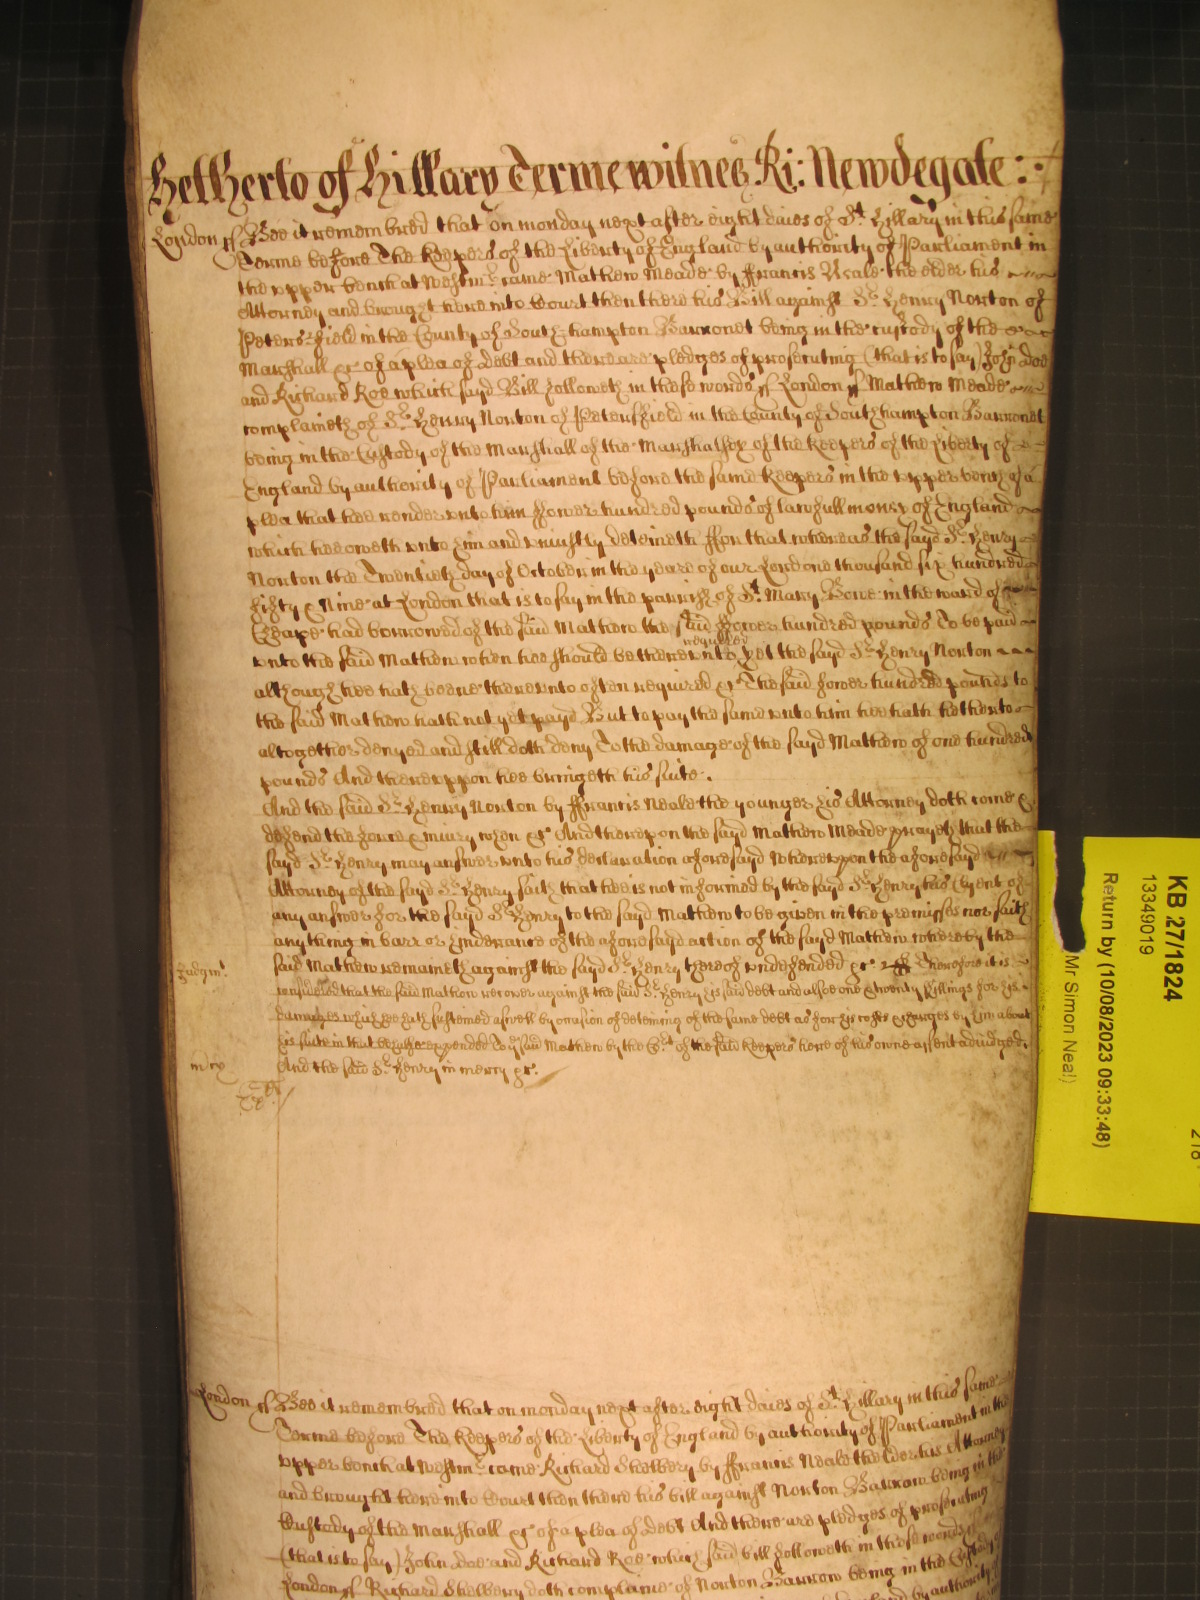 Hetherto of Hillary Terme witnes Ri: Newdegate :
London ss Bee it remembred that on monday next after eight daies of St. Hillary in this same
Terme before The Keepers of the Liberty of England by authority of Parliament in
the upper bench at Westmr. came Mathew Meade by ffrancis Neale the elder his
Attorney and brought here into Court then there his Bill against Sr. Henry Norton of
Petersfield in the County of Southampton Barronet being in the custody of the
Marshall &c of a plea of debt and there are pledges of prosecuting (that is to say) John Doe
and Richard Roe which sayd Bill followeth in these words ss London ss Mathew Meade
complaineth of Sr. Henry Norton of Petersfield in the County of Southampton Barronet
being in the Custody of the Marshall of the Marshalsey of the Keepers of the Liberty of
England by authority of Parliament before the same Keepers in the upper bench of a
plea that hee render unto him fower hundred pounds of lawfull money of England
which hee oweth unto him and uniustly deteineth ffor that whereas the sayd Sr. Henry
Norton the Twentieth day of October in the yeare of our Lord one thousand six hundred
fifty & Nine at London that is to say in the parrish of St. Mary Bowe in the ward of
Cheape had borrowed of the said Mathew the said fower hundred pounds To be paid
required
unto the said Mathew when hee should be thereunto yet the sayd Sr. Henry Norton
although hee hath beene thereunto often required &c The said fower hundred pounds to
the said Mathew hath not yet payd But to pay the same unto him hee hath hetherto
altogether denyed and still doth deny To the damage of the sayd Mathew of one hundred
pounds And thereuppon hee bringeth his suite.
And the said Sr. Henry Norton by ffrancis Neale the younger his Attorney doth come &
defend the force & iniury when &c And thereupon the sayd Mathew Meade prayeth that the
sayd Sr. Henry may answer unto his declaration aforesayd Whereupon the aforesayd
Attorney of the sayd Sr. Henry saith that hee is not informed by the sayd Sr. Henry his Clyent of
any answer for the sayd Sr. Henry to the sayd Mathew to be given in the premisses nor saith
any thing in barr or hinderance of the aforesayd action of the sayd Mathew whereby the
said Mathew remaineth against the sayd Sr. Henry thereof undefended &c Therefore it is
Judgmt.
considered that the said Mathew recover against the said Sr. Henry his said debt and alsoe one & twenty shillings for his
damages which hee hath susteined aswell by occasion of deteining of the same debt as for his costs & charges by him about
his suite in that behalfe expended To ye said Mathew by the Cort of the said Keepers here of his owne assent adiudged.
And the said Sr. Henry in mercy &c.
London ss Bee it remembred that on monday next after eight daies of St. Hillary in this same
Terme before The Keepers of the Liberty of England by authority of Parliament in the
upper bench at Westmr. came Richard Skelbery by ffrancis Neale the elder his Attorney
and brought here into Court then there his bill against Norton Barrow being in the
Custody of the Marshall &c of a plea of debt And there are pledges of prosecuting
(that is to say) John doe and Richard Roe which said bill followeth in these words ss
London ss Richard Skelbery doth complaine of Norton Barrow being in the Custody
by authority
KB 27/1824
13349019
Return by (10/08/2023 09:33:48)
Mr Simon Neal)